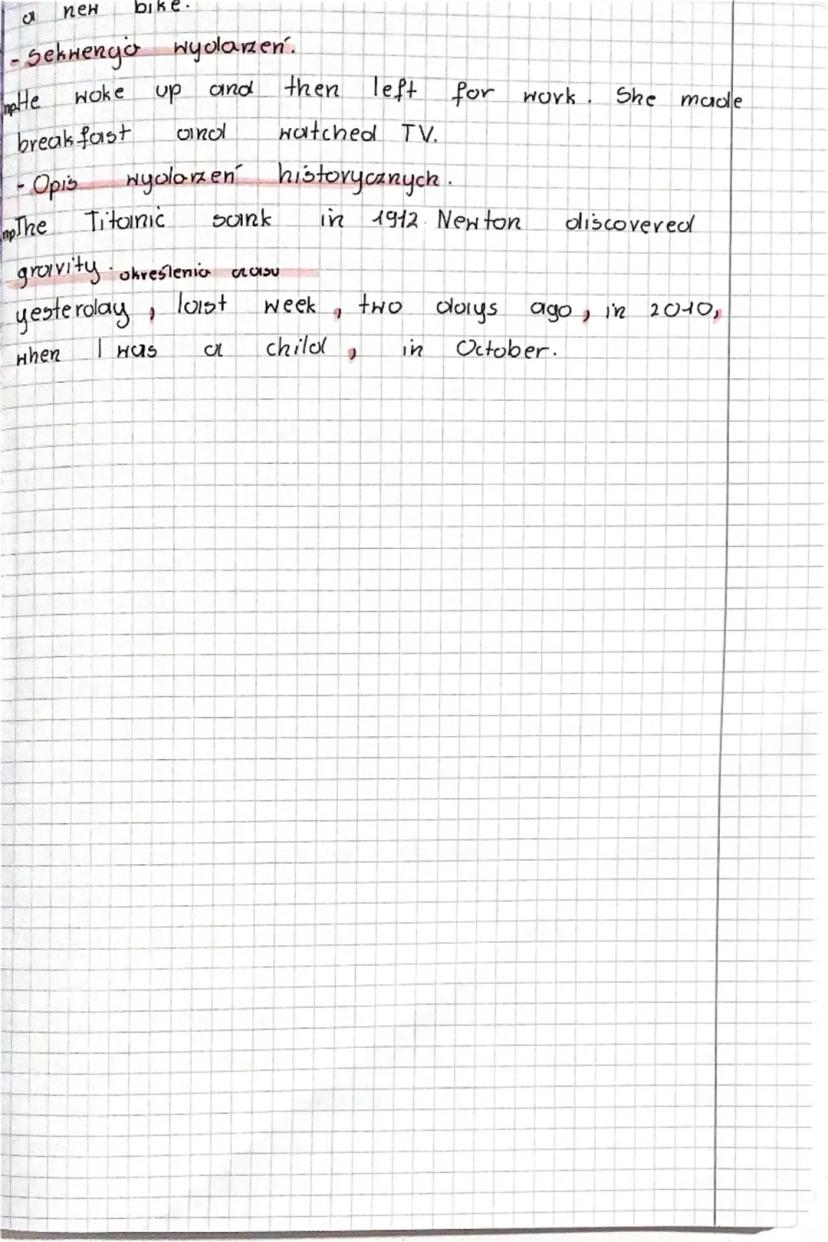 a new bike.
- Sekwencja wydarzeń.
np He woke up and then left for work. She made
breakfast and watched TV.
- Opis wydarzeń historycznych.
np The Titanic sank in 1912. Newton discovered
gravity. określenia czasu
yesterday, last week, two days ago, in 2010,
when I was a child, in October.